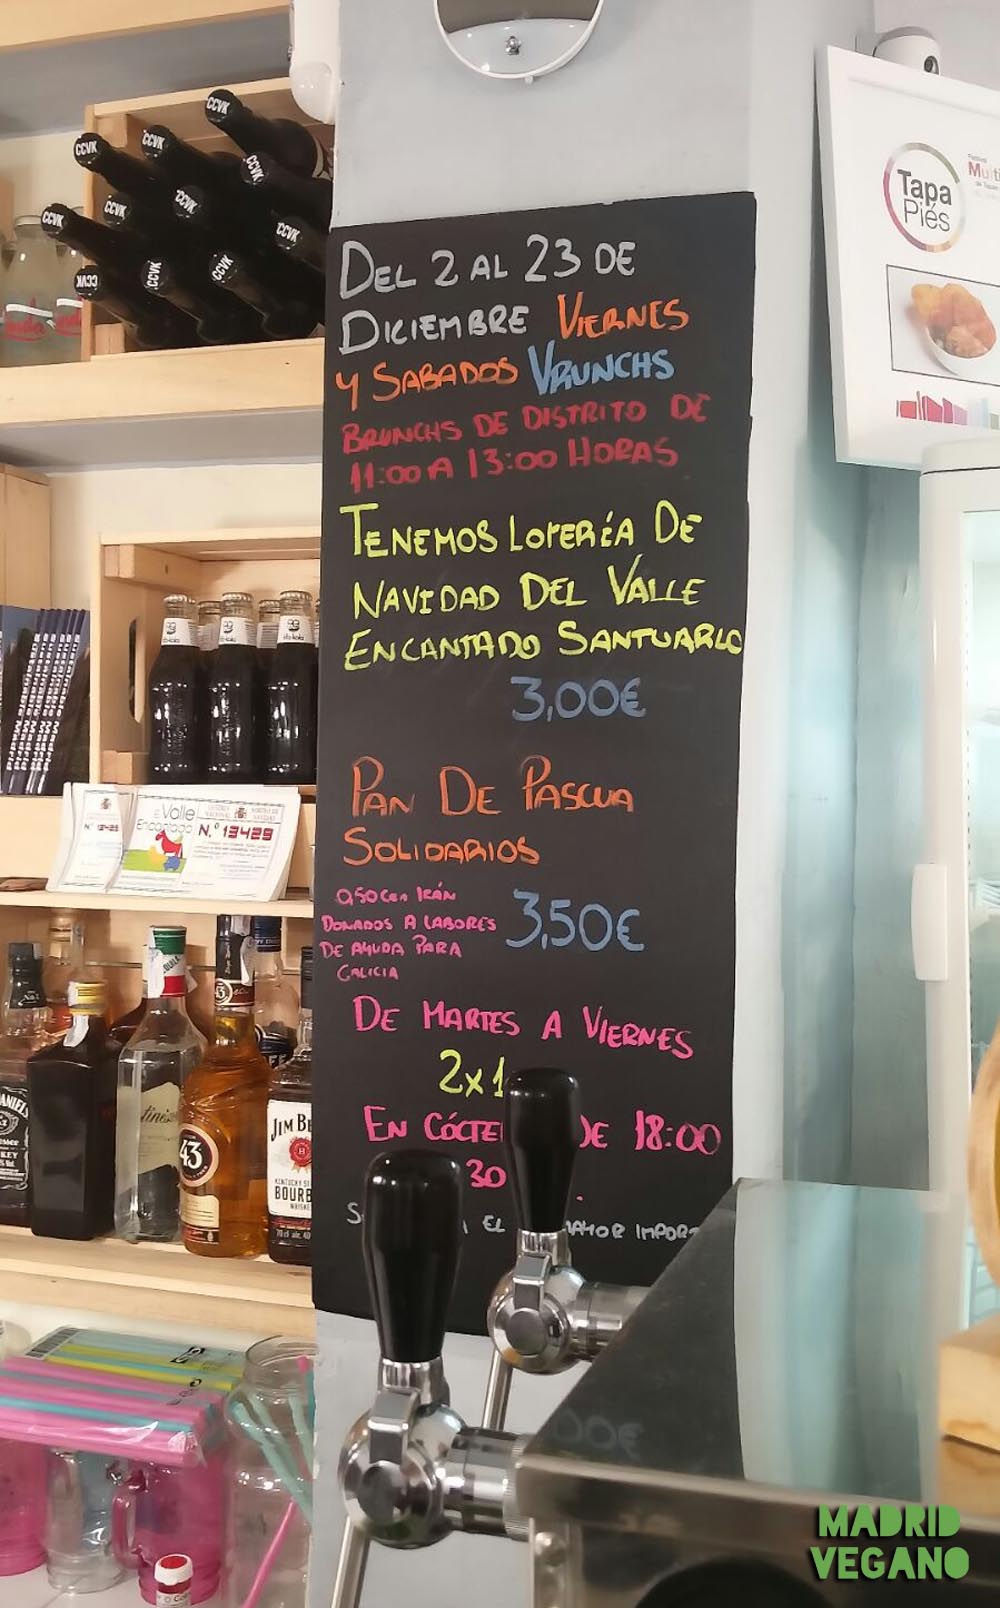 CCVK
CCVK
CCVK
CCVK
CCVK
CCVK
CCVK
CCVK
CCVK
CCVK
CCVK
Tapa
Piés
DEL 2 AL 23 DE
DICIEMBRE VIERNES
Y SABADOS VRUNCHS
BRUNCHS DE DISTRITO DE
11:00 A 13:00 HORAS
TENEMOS LOTERÍA DE
NAVIDAD DEL VALLE
ENCANTADO SANTUARIO
3,00€
PAN DE PASCUA
SOLIDARIOS
0,50 CEN IRÁN
DONADOS A LABORES
DE AYUDA PARA
GALICIA
3,50€
DE MARTES A VIERNES
2x1
EN CÓCTE DE 18:00
30
EL MAYOR IMPORT
El Valle
Encantado
N.º 13429
43
JIM BE
KENTUCKY
BOURB
WHISKEY
MADRID
VEGANO